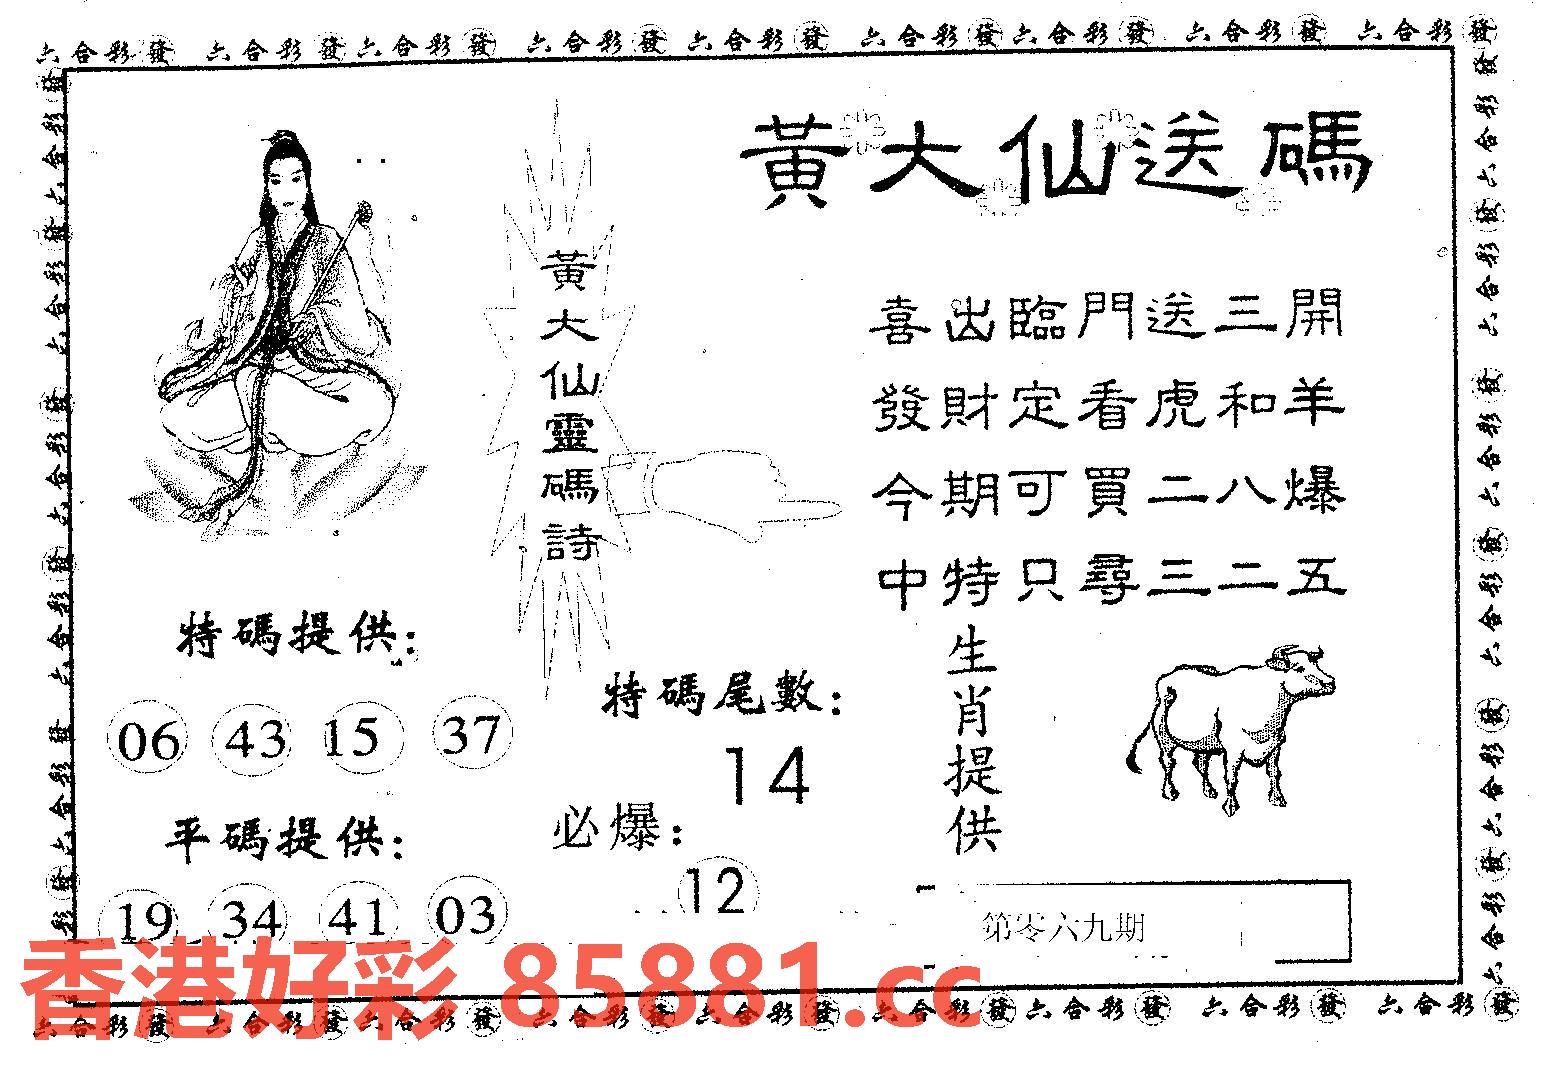 六合彩發 六合彩發六合彩發 六合彩發 六合彩發 六合彩發六合彩發 六合彩發 六合彩發
黃大仙送碼
黃大仙靈碼詩
喜出臨門送三開
發財定看虎和羊
今期可買二八爆
中特只尋三二五
特碼提供:
06 43 15 37
平碼提供:
19 34 41 03
特碼尾數:
14
必爆:
12
生肖提供
第零六九期
香港好彩 85881.cc
六合彩發 六合彩發六合彩發 六合彩發 六合彩發 六合彩發六合彩發 六合彩發 六合彩發